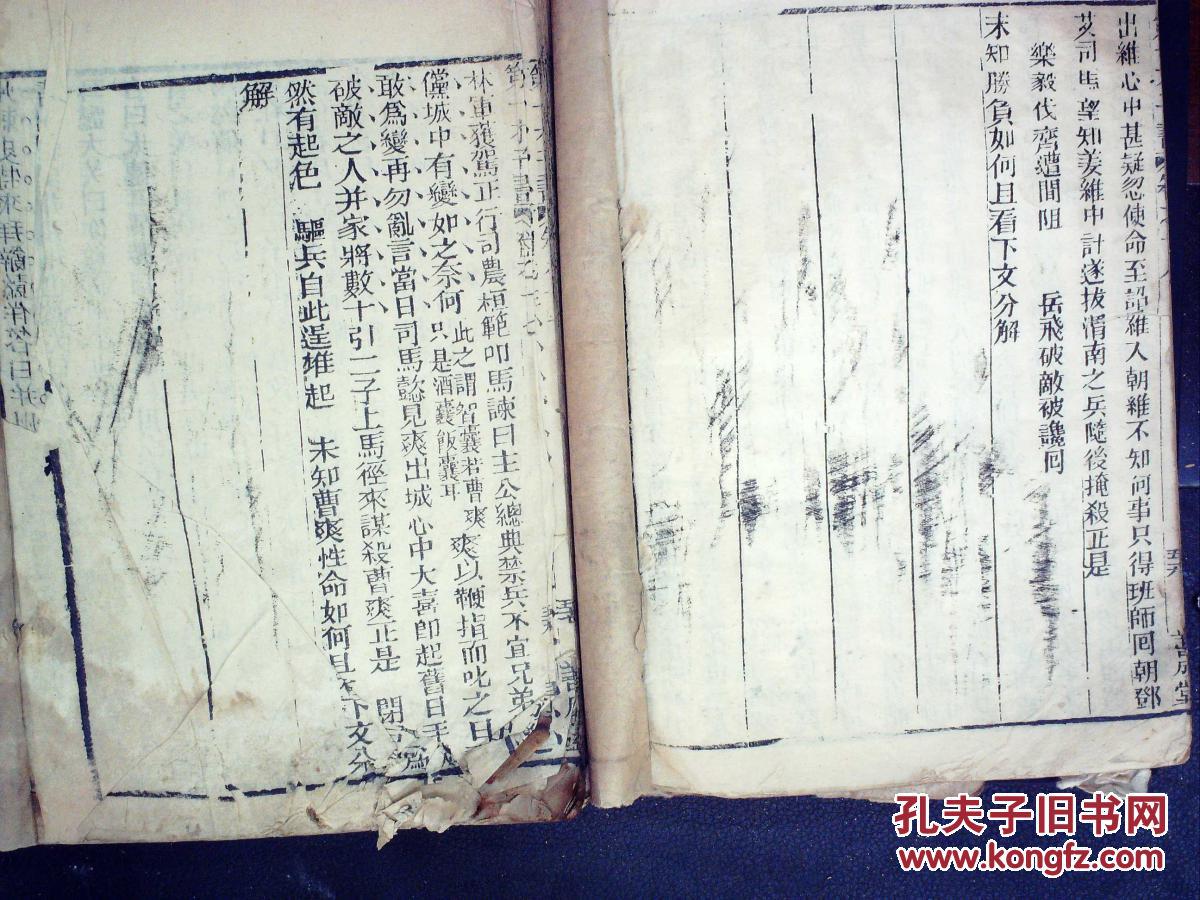 出維心中甚疑忽使命至詔維入朝維不知何事只得班師回朝鄧
艾司馬望知姜維中計遂拔渭南之兵隨後掩殺正是
樂毅伐齊遭間阻 岳飛破敵被讒回
未知勝負如何且看下文分解
善成堂
第一才子書
林軍護駕正行司農桓範叩馬諫曰主公總典禁兵不宜兄弟
儻城中有變如之奈何 此之謂智囊若曹爽只是酒囊飯囊耳 爽以鞭指而叱之曰
敢爲變再勿亂言當日司馬懿見爽出城心中大喜卽起舊日手
破敵之人并家將數十引二子上馬徑來謀殺曹爽正是 閉
然有起色 驅兵自此逞雄起 未知曹爽性命如何且 下文分
解
孔夫子旧书网
www.kongfz.com